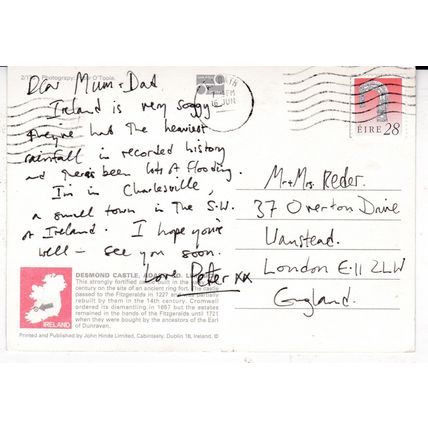 Photography: O'Toole.
Dear Mum & Dad.
Ireland is very soggy -
they've had the heaviest
rainfall in recorded history
and there's been lots of flooding.
I'm in Charlesville,
a small town in the S.W.
of Ireland. I hope you're
well - see you soon.
Love Peter xx
16 JUN
ÉIRE 28
Mr & Mrs. Reder.
37 Overton Drive
Wanstead.
London E.11 2LW
England.
IRELAND
DESMOND CASTLE,
This strongly fortified built in the
century on the site of an ancient ring fort. The castle
passed to the Fitzgeralds in 1227 and partially
rebuilt by them in the 14th century. Cromwell
ordered its dismantling in 1657 but the estates
remained in the hands of the Fitzgeralds until 1721
when they were bought by the ancestors of the Earl
of Dunraven.
Printed and Published by John Hinde Limited, Cabinteely, Dublin 18, Ireland. ©